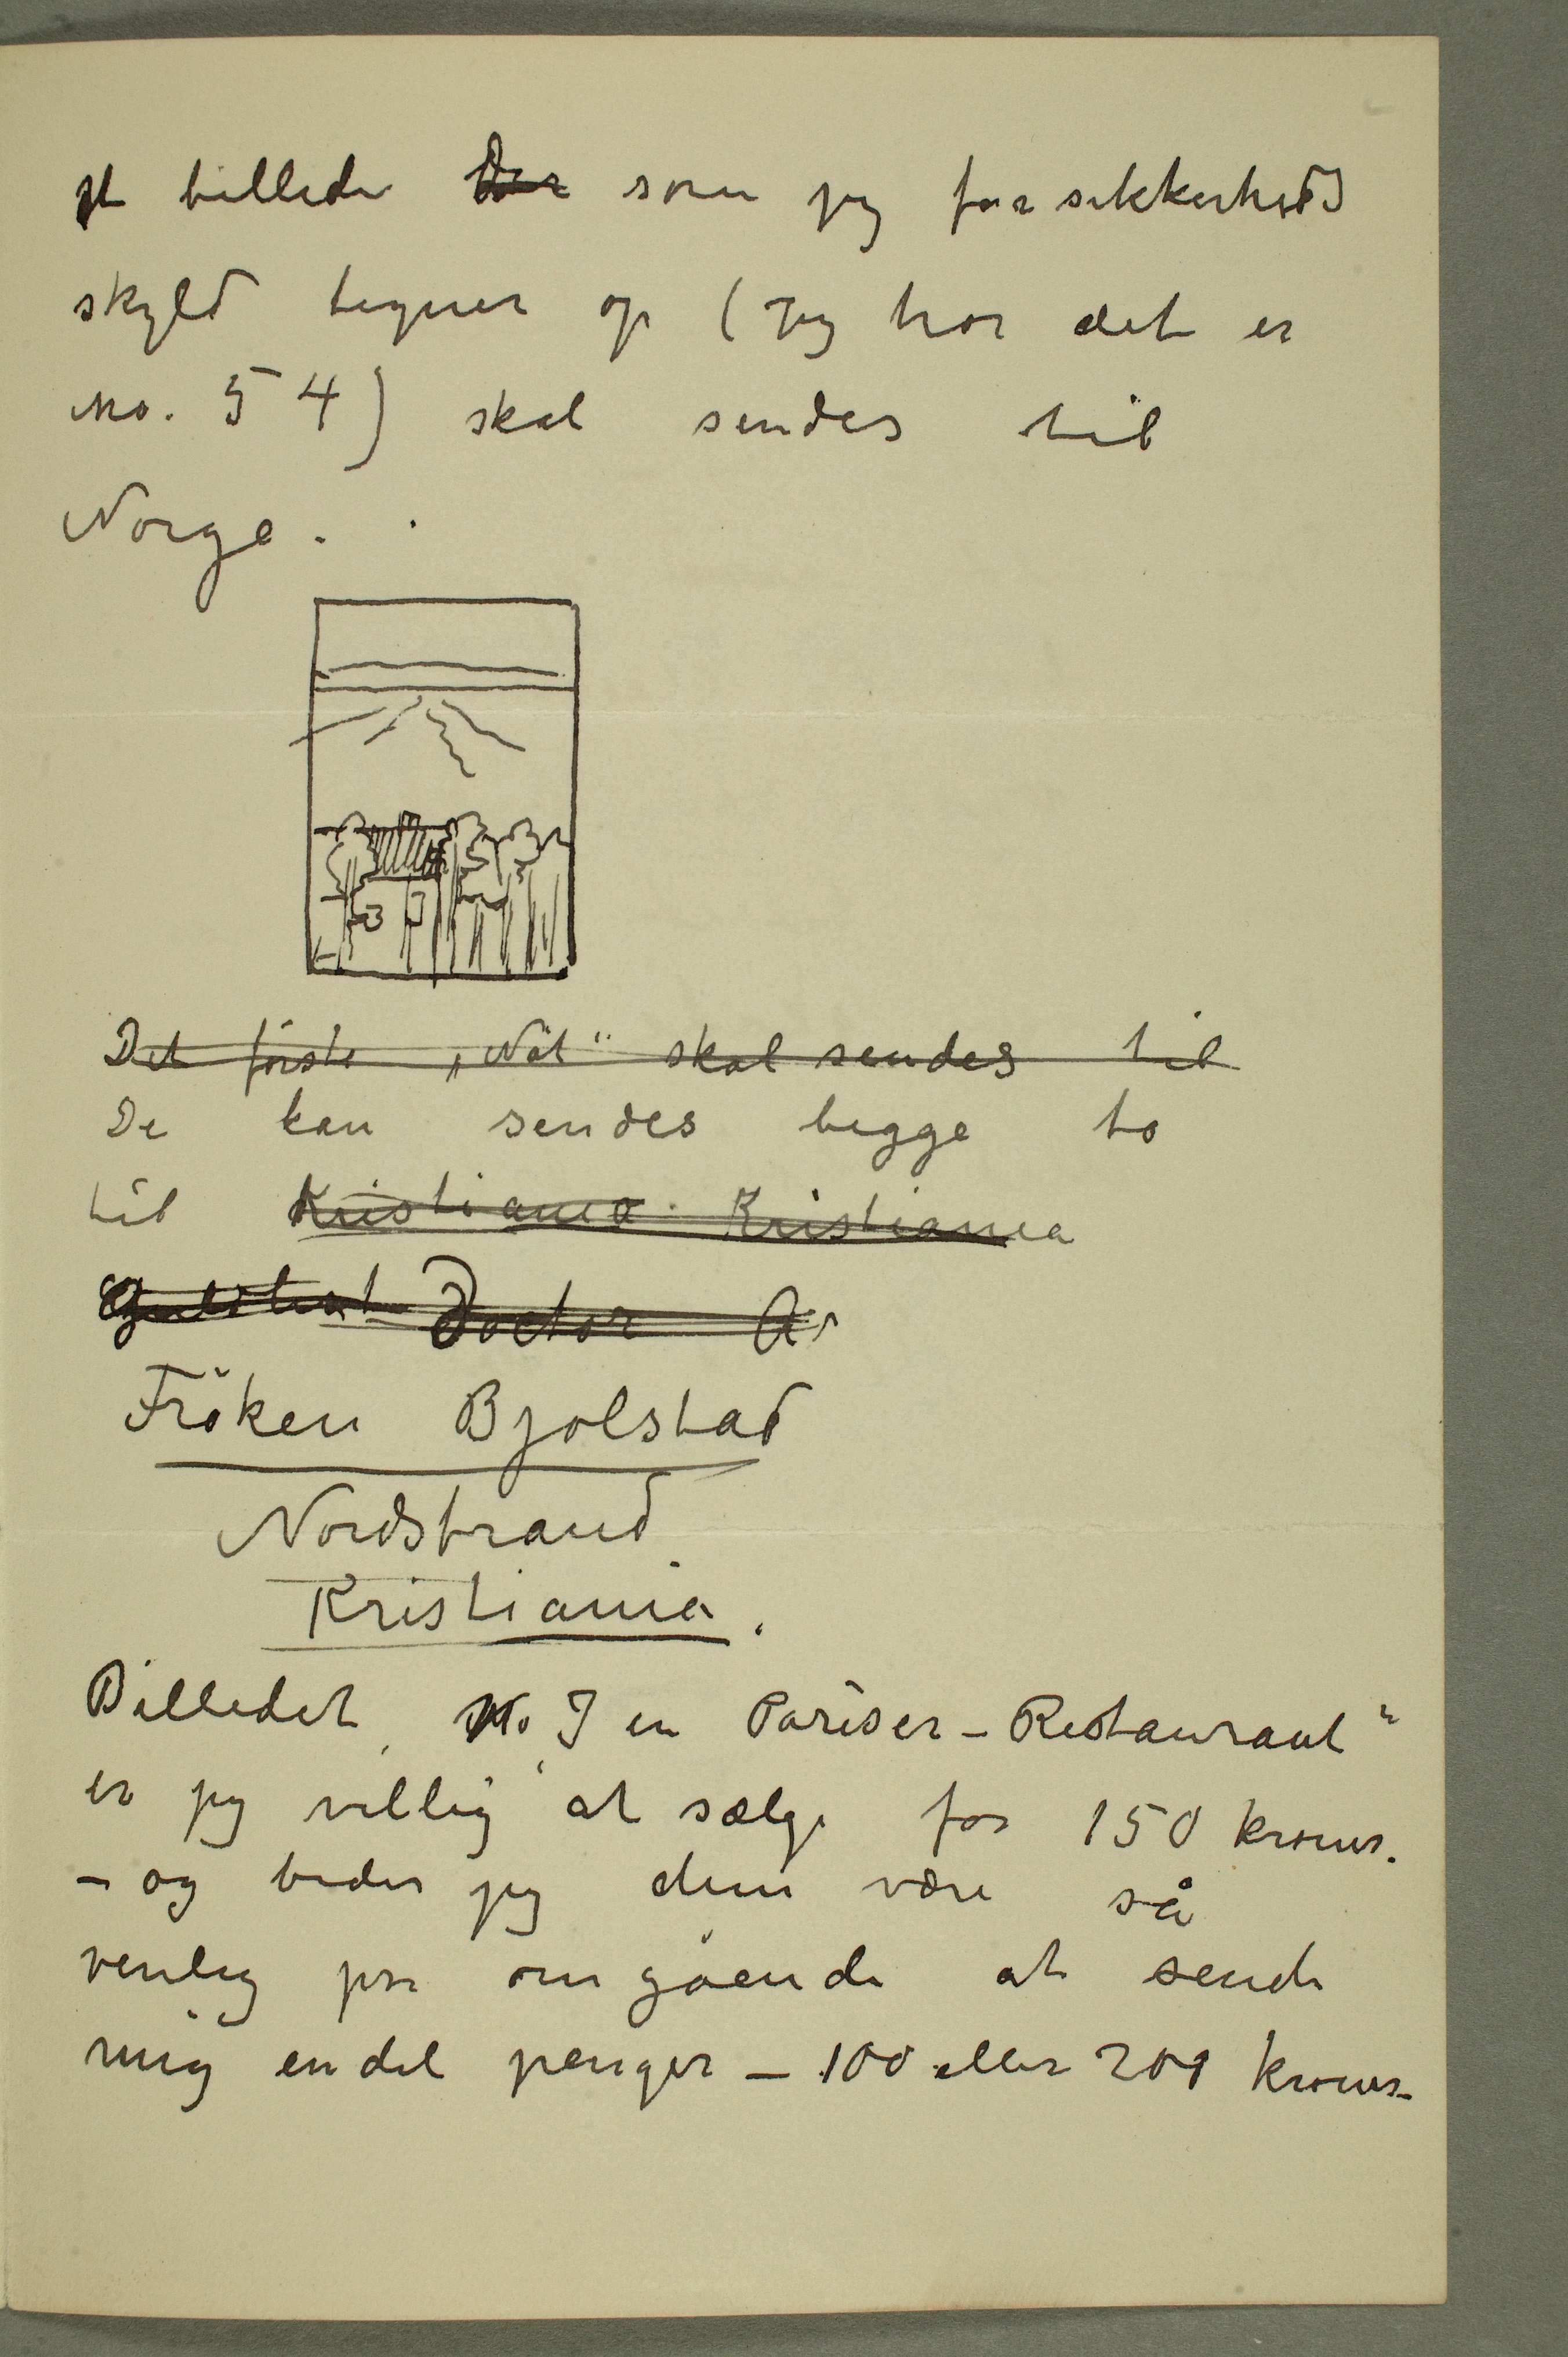 et billede ~~Der~~ som jeg for sikkerheds
skyld tegner op (Jeg tror det er
No. 54) skal sendes til
Norge.
~~Det förste „Nat“ skal sendes til~~
De kan sendes begge to
til ~~Kristiania. Kristiania~~
~~Doctor Ar~~
Fröken Bjolstad
Nordstrand
Kristiania.
Billedet, No. „I en Pariser-Restaurant“
er jeg villig at sælge for 150 kroner.
– og beder jeg dem være så
venlig per omgående at sende
mig endel penger – 100 eller 200 kroner–